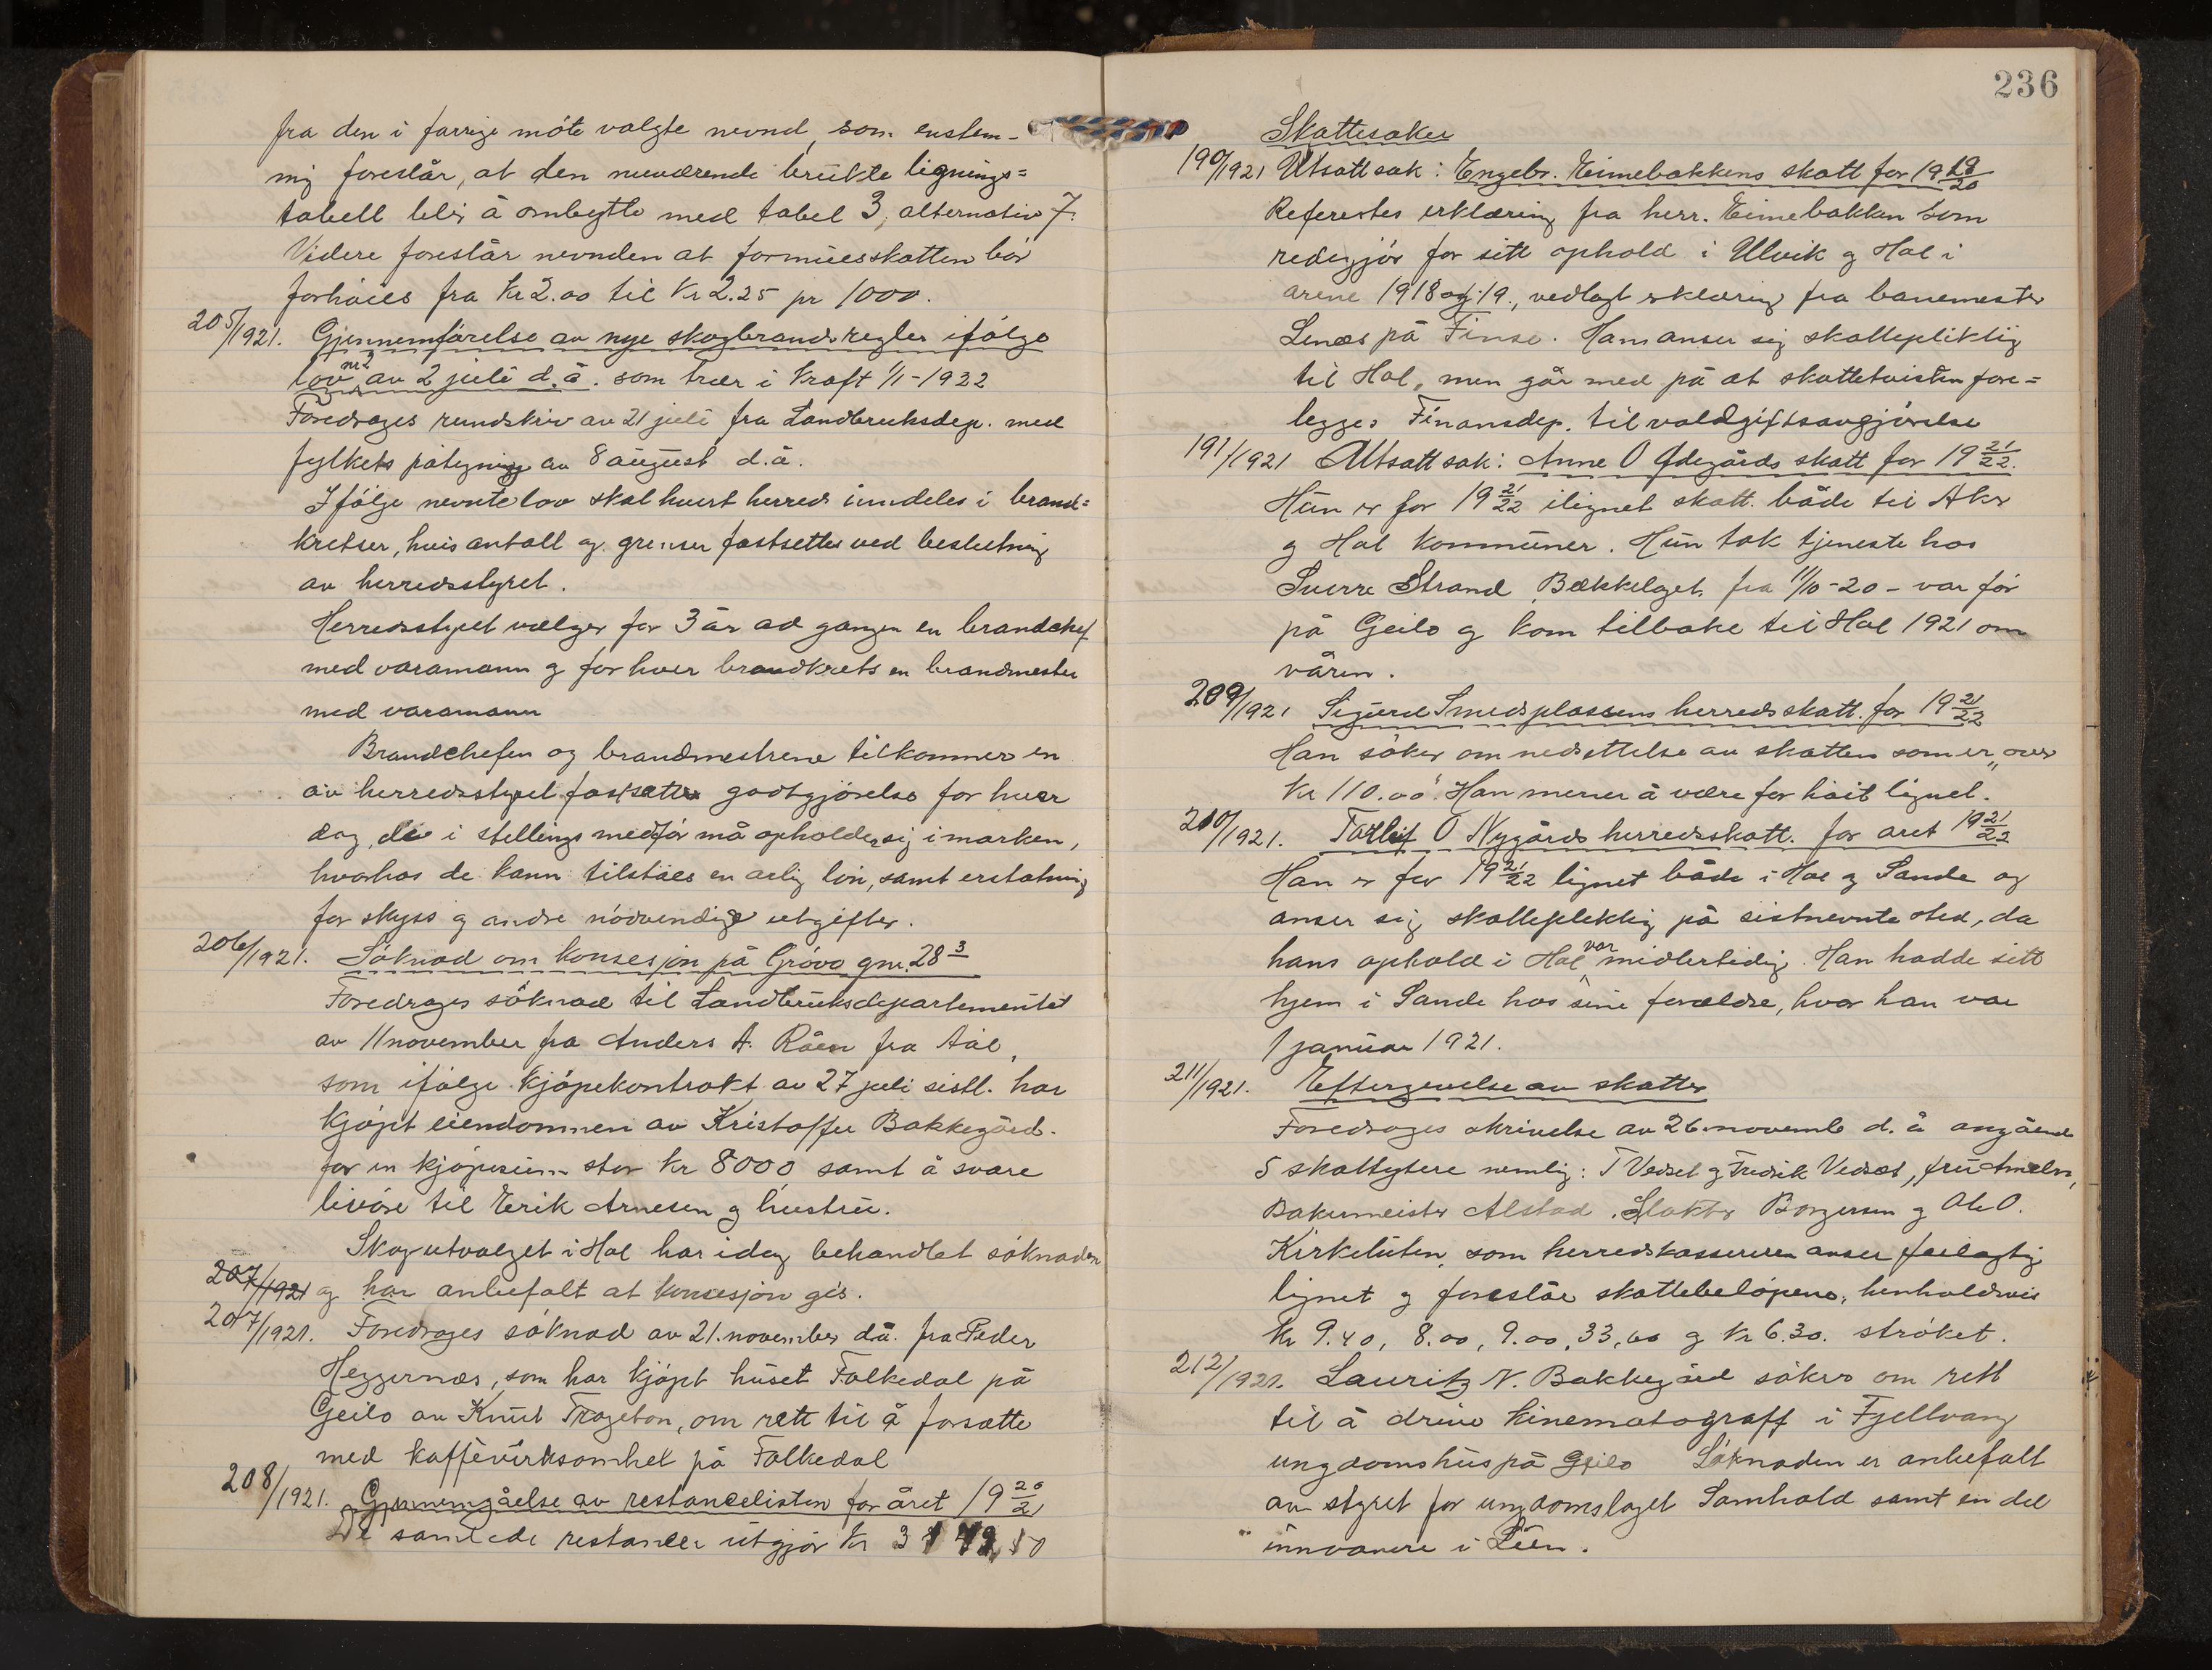 fra den i farrige møte valgte nevnd, som enstem-
mig foreslår, at den nuværende brukte lignings=
tabell blir å ombytte med tabel 3, alternativ 7.
Videre foreslår nevnden at formuesskatten bör
forhöies fra Kr 2.00 til Kr 2.25 pr 1000.
205/1921. Gjennemförelse av nye skogbrandsregler ifölge
lov nr 2 av 2 juli d.å. som trær i kraft 1/1-1922
Foredrages rundskriv av 21 juli fra Landbruksdep. med
fylkets påtegning av 8 august d.å.
Ifölge nevnte lov skal hvert herred inndeles i brand=
kretser, hvis antall og grenser fastsettes ved beslutning
av herredsstyret.
Herredsstyret vælger for 3 år ad gangen en brandchef
med varamann og for hver brandkrets en brandmester
med varamann
Brandchefen og brandmestrene tilkommer en
av herredsstyret fastsatte godtgjörelse for hver
dag, de i stellings medför må opholde sig i marken,
hvorhos de kann tilståes en årlig lön, samt erstatning
for skyss og andre nödvendige utgifter.
206/1921. Söknad om konsesjon på Grövo gnr. 28 3
Foredrages söknad til Landbruksdepartementet
av 11 november fra Anders A. Råen fra Aal,
som ifölge kjöpekontrakt av 27 juli sistl. har
kjöpt eiendommen av Kristoffer Bakkegård.
for en kjöpesum stor Kr 8000, samt å svare
livöre til Erik Arnesen og hustru.
Skogutvalget i Hol har idag behandlet söknaden
207/1921 og har anbefalt at konsesjon gis.
207/1921. Foredrages söknad av 21. november då. fra Peder
Heggernæs, som har kjöpt huset Folkedal på
Geilo av Knut Trageton, om rett til å forsatte
med kaffèvirksomhet på Folkedal
208/1921. Gjennemgåelse av restancelisten for året 19 20/21
De samlede restanser utgjör Kr
236
Skattesaker
190/1921 Utsatt sak: Engebr. Eimebakkens skatt for 19 19/20
Referertes erklæring fra herr. Eimebakken som
redegjör for sitt ophold i Ulvik og Hol i
årene 1918 og 19., vedlagt erklæring fra banemester
Lenæs på Finse. Han anser sig skattepliktig
til Hol, men går med på at skattetvisten fore=
legges Finansdep. til voldgiftsavgjörelse
191/1921 Utsatt sak: Anne O Ødegårds skatt for 19 21/22.
Hun er for 19 21/22 ilignet skatt. både til Aker
og Hol kommuner. Hun tok tjeneste hos
Sverre Strand Bækkelaget fra 11/10-20 - var för
på Geilo og kom tilbake til Hol 1921 om
våren.
209/1921 Sigurd Smedsplassens herredsskatt. for 19 21/22
Han söker om nedsettelse av skatten som er „over
Kr 110.00". Han mener å være for höit lignet.
210/1921. Torleif O Nygårds herredsskatt. for året 19 21/22
Han er for 19 21/22 lignet både i Hol og Sande og
anser sig skattepliktig på sistnevnte sted, da
hans ophold i Hol var midlertidig. Han hadde sitt
hjem i Sande hos sine forældre, hvor han var
1 januar 1921.
211/1921. Eftergivelse av skatter
Foredrages skrivelse av 26 novemb d. å angående
5 skattytere nemlig: T Vedset og Fredrik Vedset, fru
Bakermeister Alstad, Slakter Borgersen og Ole O.
Kirkeluten, som herredskassereren anser feilagtig
lignet og foreslår skattebelöpene, henholdsvis
Kr 9.40, 8.00, 9.00, 33,60 og Kr 6.30. ströket.
212/1921. Lauritz N. Bakkegård söker om rett
til å drive kinematograff i Fjellvang
ungdomshus på Geilo Söknaden er anbefalt
av styret for ungdomslaget Samhold samt en del
innvånere i Lien.